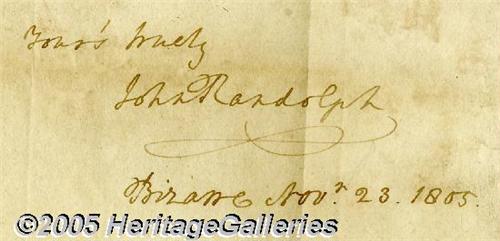 Your's truely
John Randolph
Bizarre Novr. 23. 1805.
©2005 HeritageGalleries